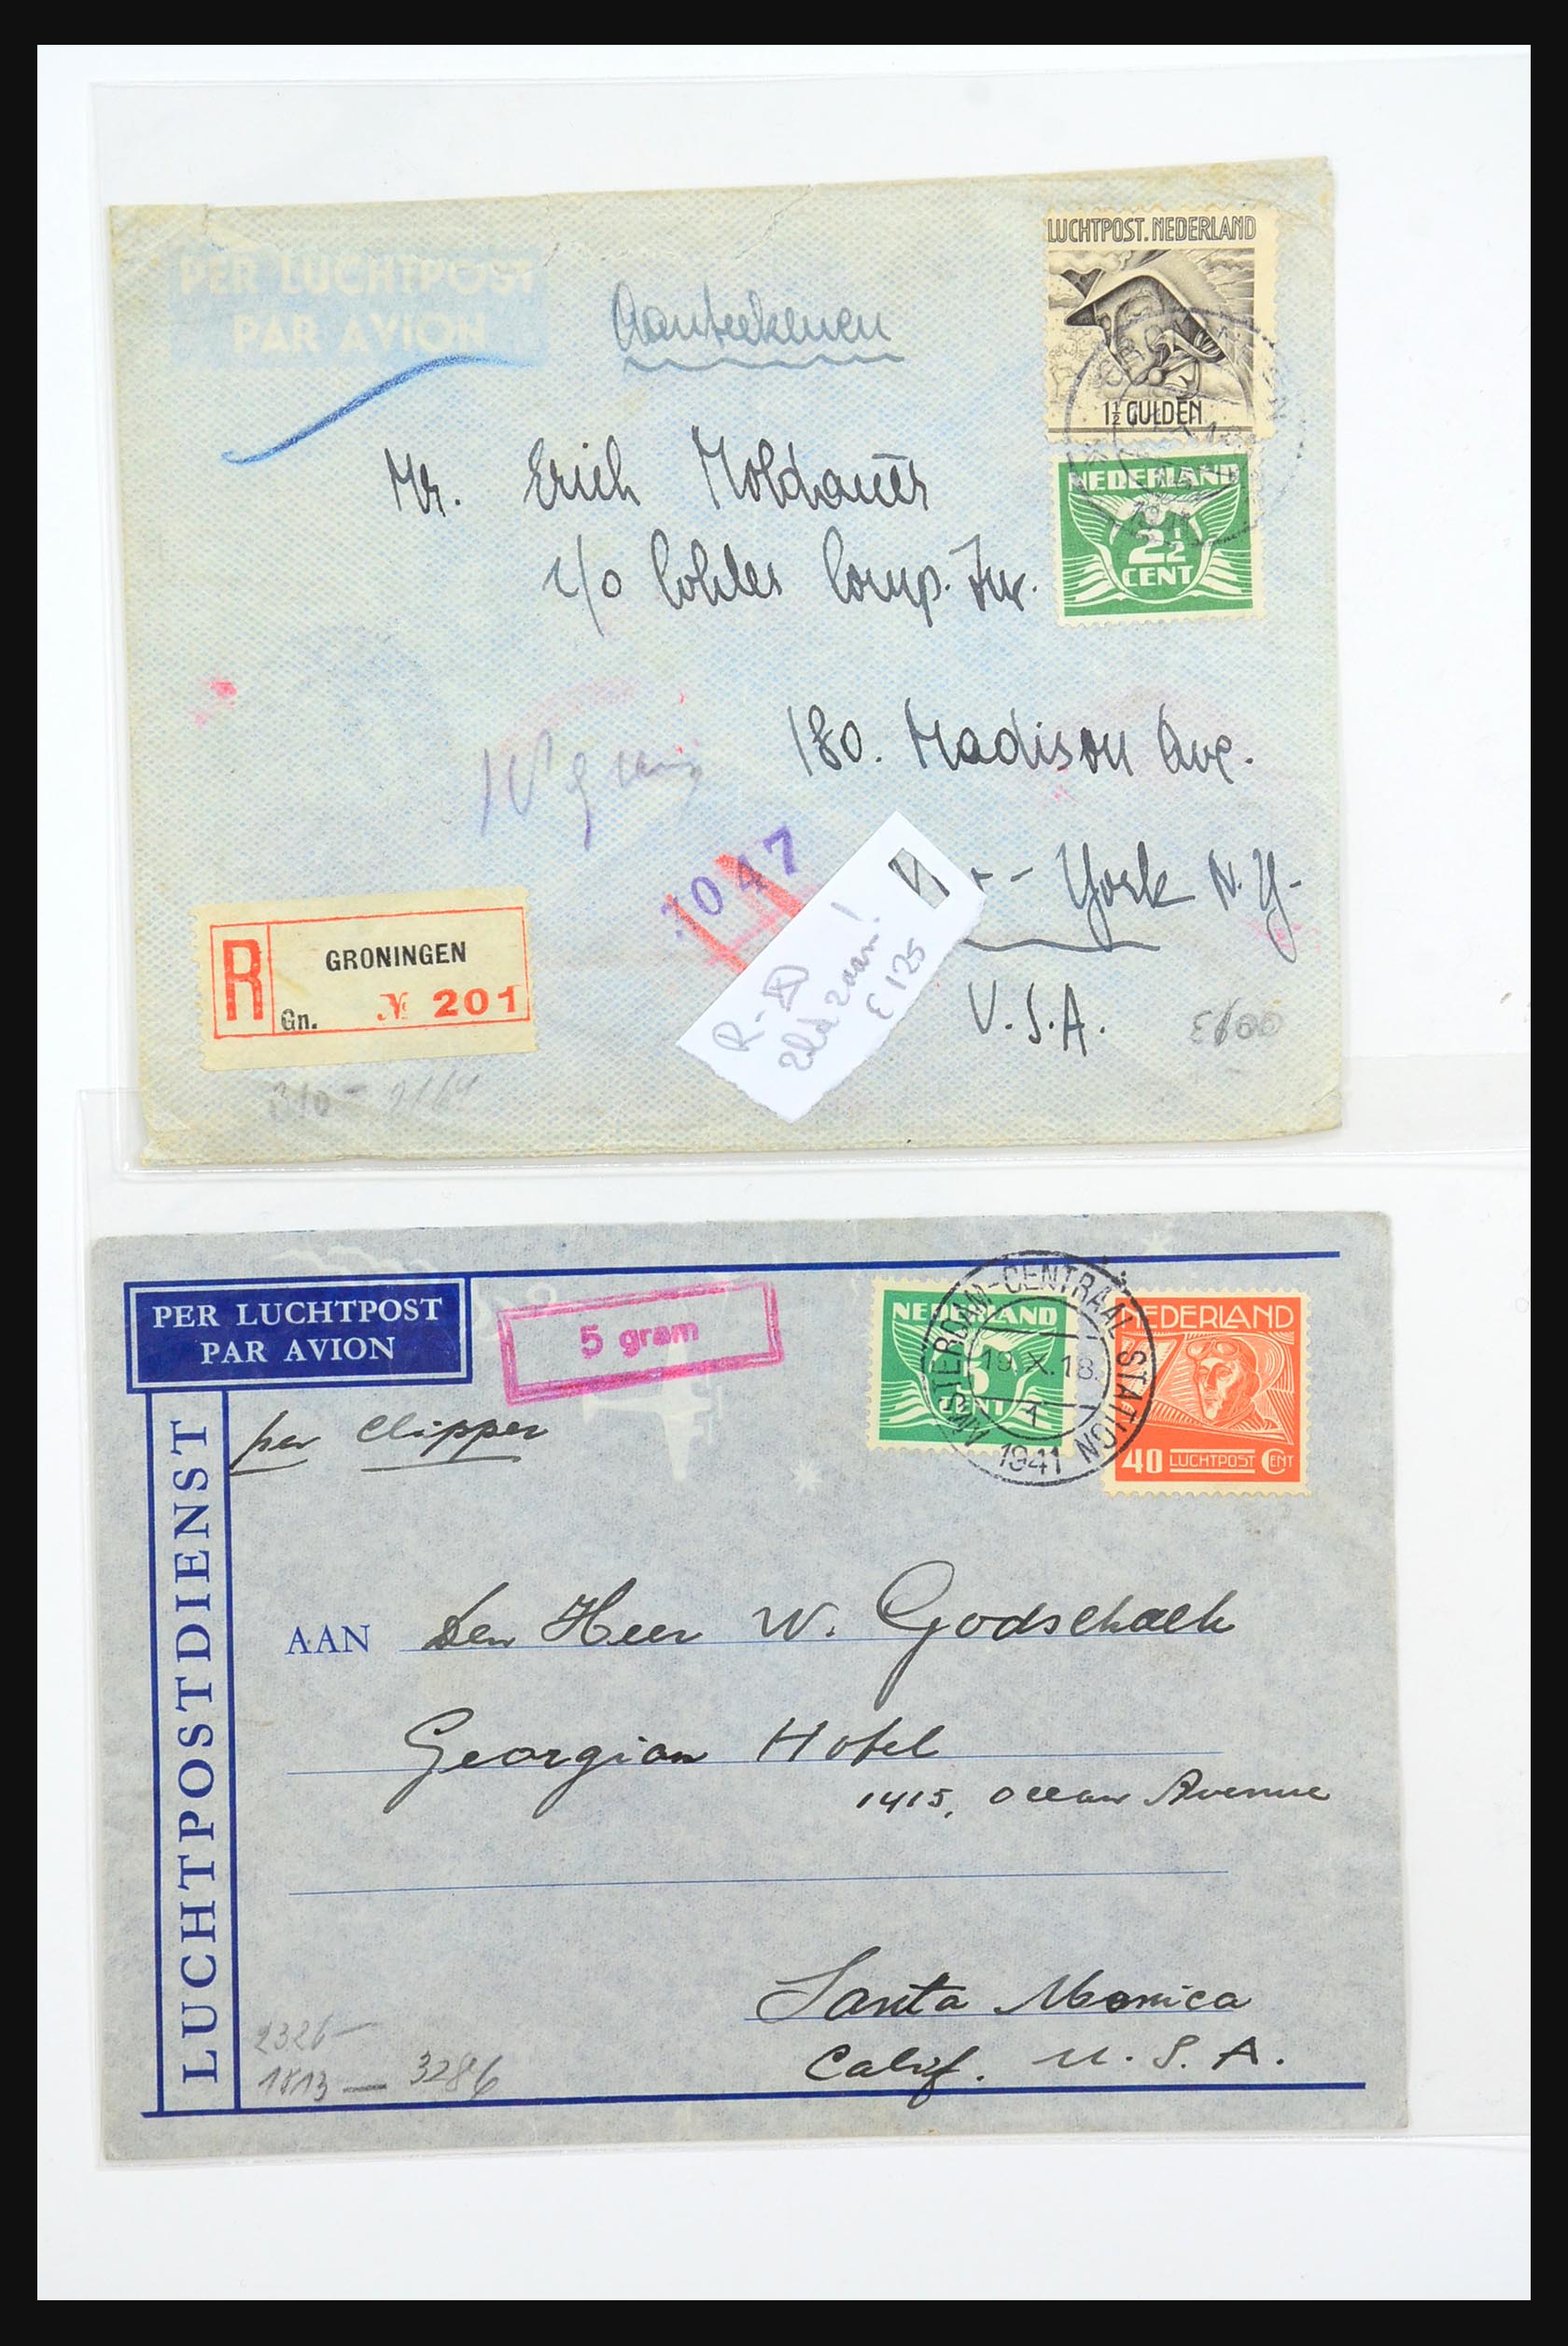 PER LUCHTPOST
PAR AVION
Aantekenen
LUCHTPOST. NEDERLAND
1½ GULDEN
NEDERLAND
2½
CENT
Mr. Erich Moldauer
c/o Cohler Comp. Inc.
180. Madison Ave.
York N.Y.
U.S.A.
1047
R-
zeldzaam!
E 125
E600
R
GRONINGEN
Gn. № 201
310-
PER LUCHTPOST
PAR AVION
5 gram
NEDERLAND
5
CENT
AMSTERDAM-CENTRAAL STATION
19.X.18.
1
1941
NEDERLAND
40 LUCHTPOST CENT
per Clipper
LUCHTPOSTDIENST
AAN Den Heer W. Godschalk
Georgian Hotel
1415, Ocean Avenue
Santa Monica
Calif. U.S.A.
2326-
1813 - 3286